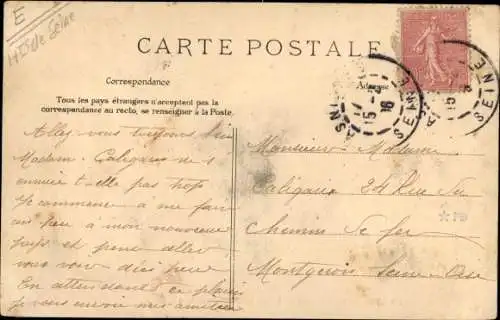 E
Hts de Seine
CARTE POSTALE
Correspondance
Adresse
Tous les pays étrangers n'acceptent pas la
correspondance au recto, se renseigner à la Poste.
ASNI
15-2
16
SEINE
15
SEINE
Allez vous toujours bien
Madame Caligaux ne s
ennuie t-elle pas trop
Je commence à me faire
un peu à mon nouveau
pays et pense aller
vous voir d'ici peu
En attendant ce plaisir
je vous envoie mes amitiés
Monsieur Madame
Caligaux 24 Rue du
Chemin de fer
Montgeron Seine-Oise